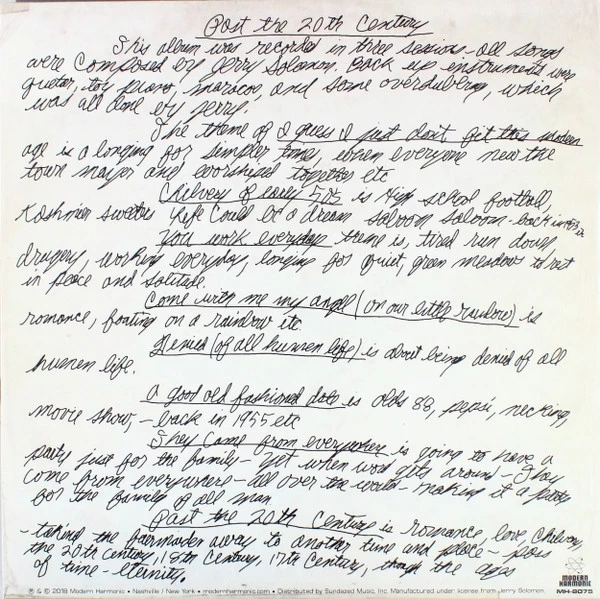 Past the 20th Century
This album was recorded in three sessions - all songs
were composed by Jerry Solomon. Back up instruments were
guetar, toy piano, maracas, and some overdubering, which
was all done by Jerry.
The theme of I guess I just don't fit this modern
age is a longing for simpler times, when everyone new the
town mayor and worshiped together etc
Chilvery of early 50's is High school football,
Kashmier sweeters Life could be a dream - back in 1953
You work everyday theme is, tired run down,
drugery, working everyday, longing for quiet, green meadows to rest
in peace and solitude.
Come with me my angel (on our little rainbow) is
romance, floating on a rainbow etc
Denied (of all humen life) is about being denied of all
humen life.
A good old fashioned date is olds 88, pepsi, necking,
movie show, - back in 1955 etc
They Came From everywhere is going to have a
party just for the family - yet when word gets around - They
come from everywhere - all over the world - making it a party
for the family of all man
Past the 20th Century is romance, love, Chilvery,
- takend the fairmaiden away to another time and place - pass
the 20th Century, 18th Century, 17th Century, though the ages
of time - eternity.
℗ & © 2018 Modern Harmonic • Nashville / New York • modernharmonic.com • Distributed by Sundazed Music, Inc. Manufactured under license from Jerry Solomon.
MODERN
HARMONIC
MH-8075